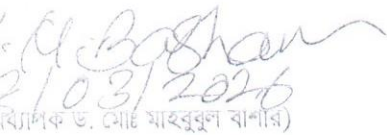 M. Bashar
2/03/2026
ধ্যাপক ড. মোঃ মাহবুবুল বাশার)